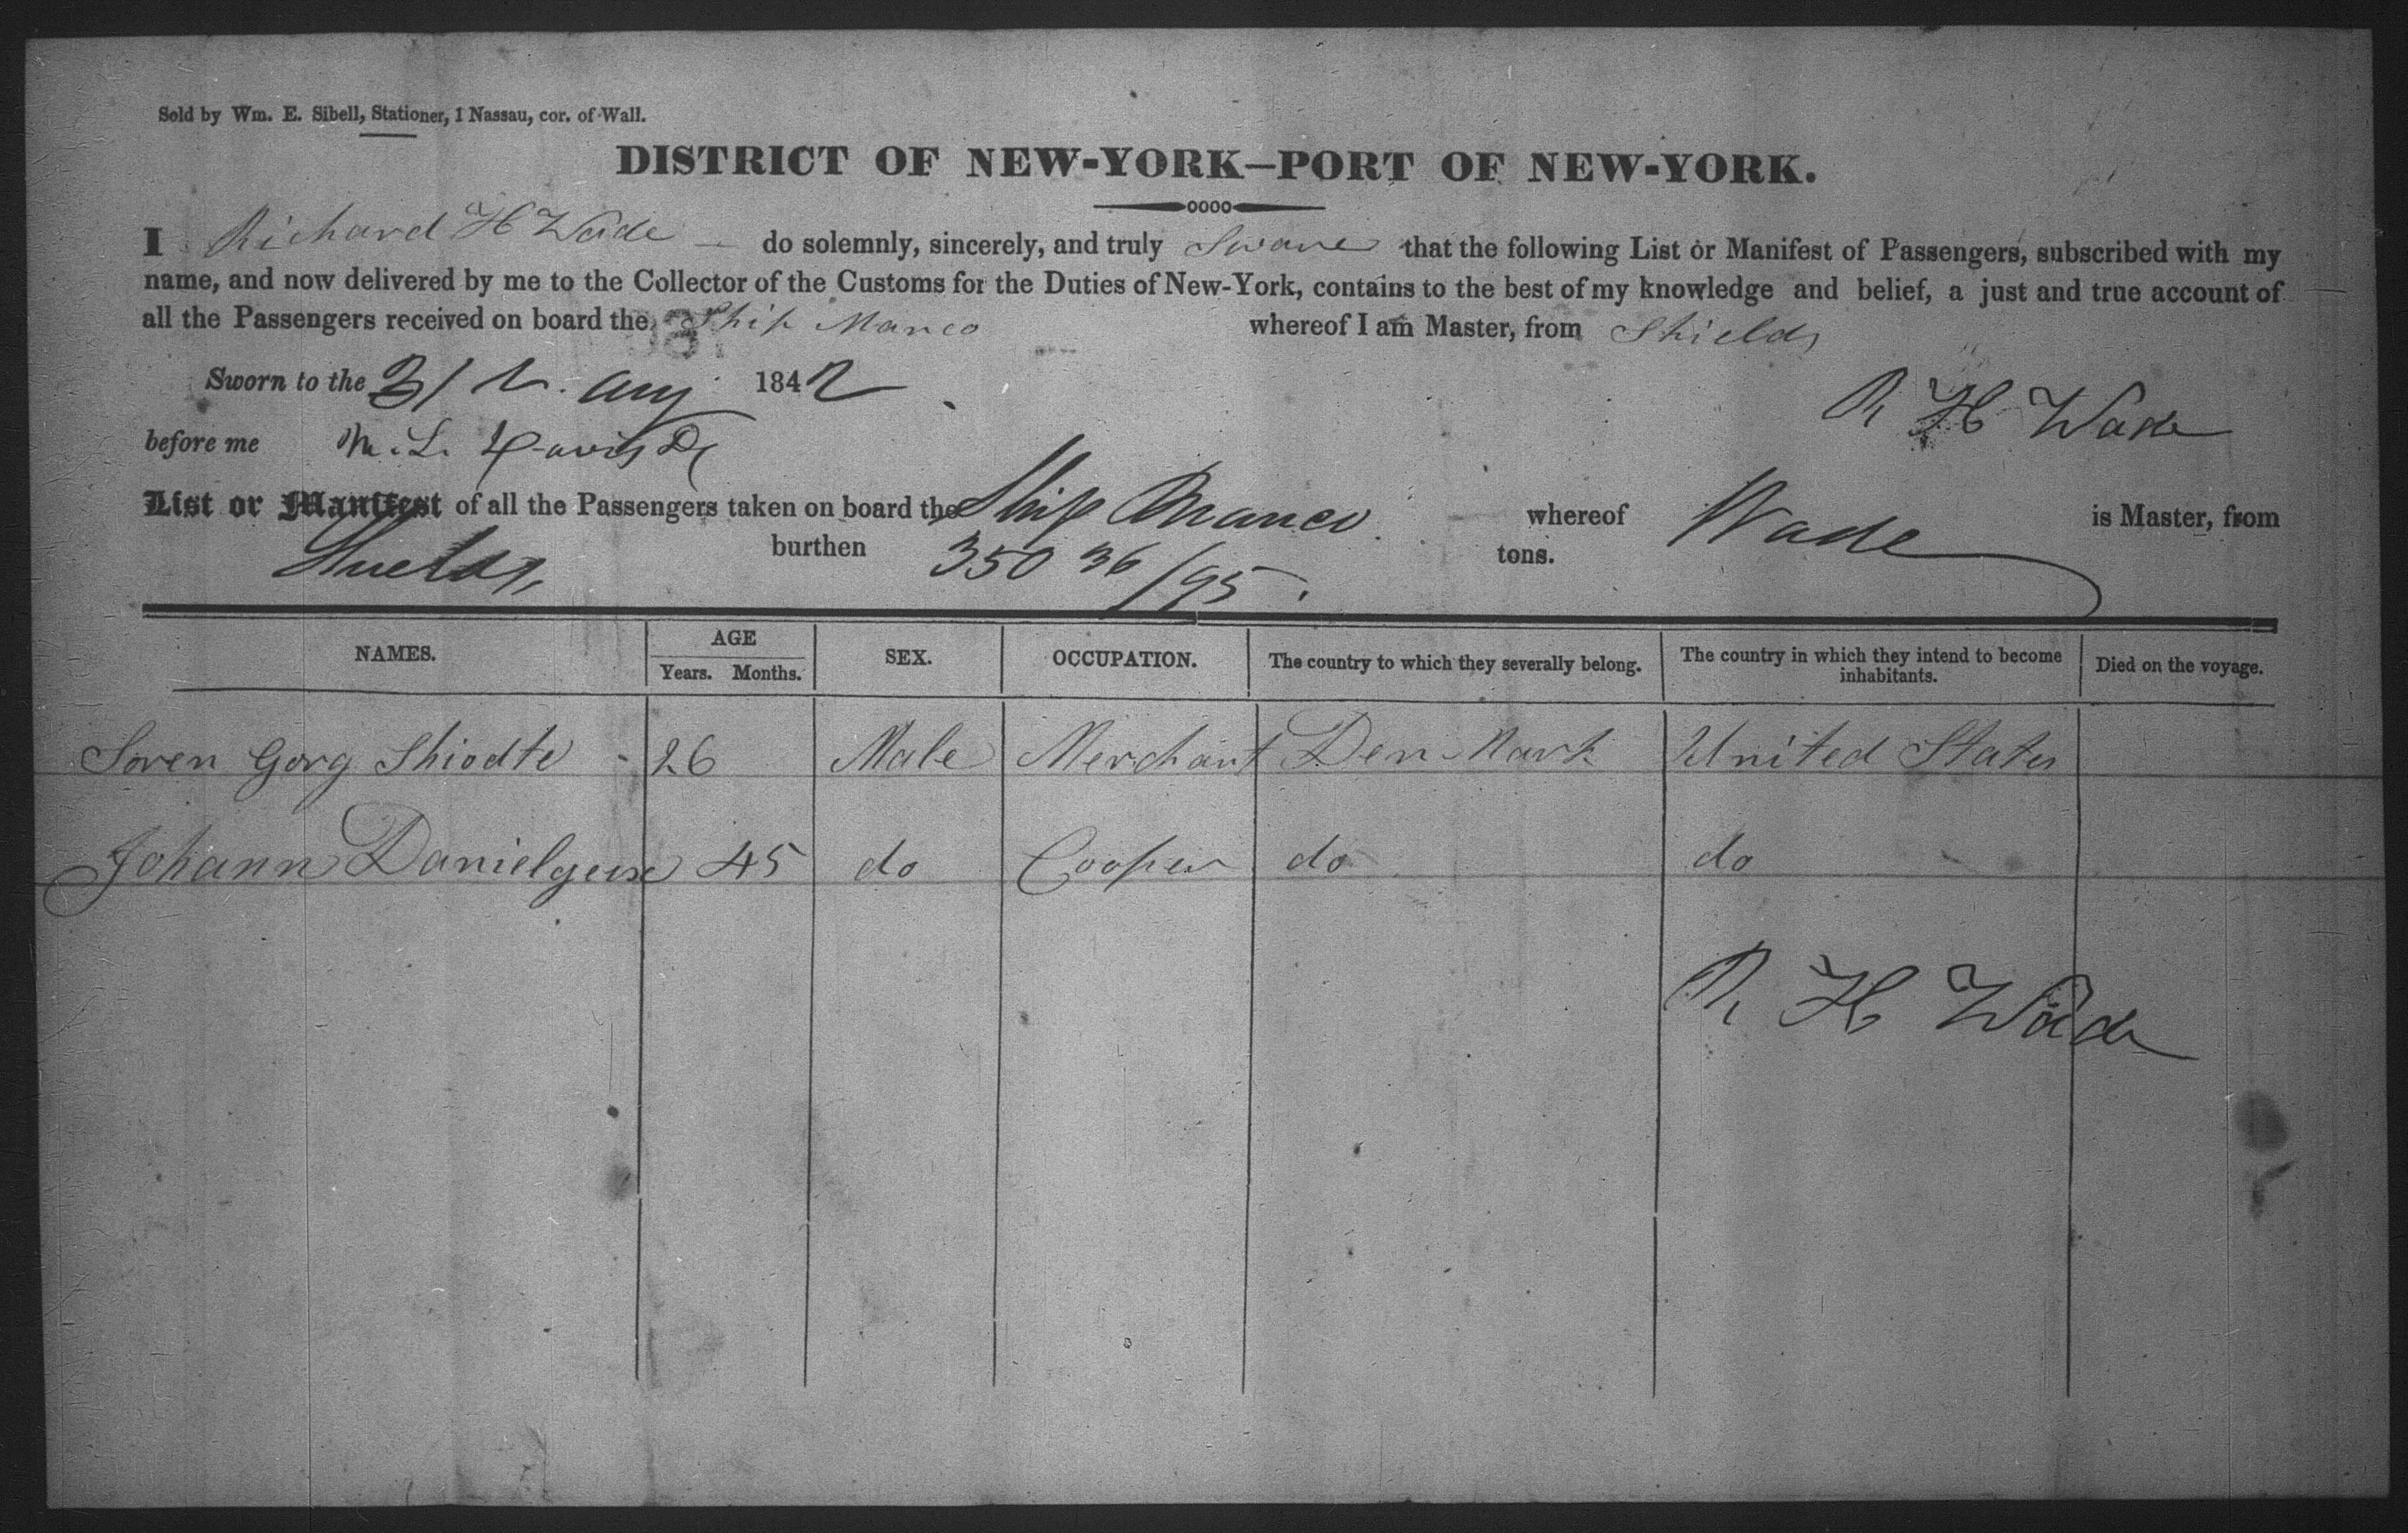 Sold by Wm. E. Sibell, Stationer, 1 Nassau, cor. of Wall.
DISTRICT OF NEW-YORK—PORT OF NEW-YORK.
I Richard H Wade do solemnly, sincerely, and truly Sware that the following List or Manifest of Passengers, subscribed with my
name, and now delivered by me to the Collector of the Customs for the Duties of New-York, contains to the best of my knowledge and belief, a just and true account of
all the Passengers received on board the Ship Manco whereof I am Master, from Shields
Sworn to the 31 Aug 1842
R H Wade
before me M. L. Davis
List or Manifest of all the Passengers taken on board the Ship Manco whereof Wade is Master, from
Shields, burthen 350 36/95 tons.
NAMES. AGE Years. Months. SEX. OCCUPATION. The country to which they severally belong. The country in which they intend to become inhabitants. Died on the voyage.
Soren Gorg Shiodte 26 Male Merchant Den Mark United States
Johann Danielgeuse 45 do Cooper do do
R H Wade